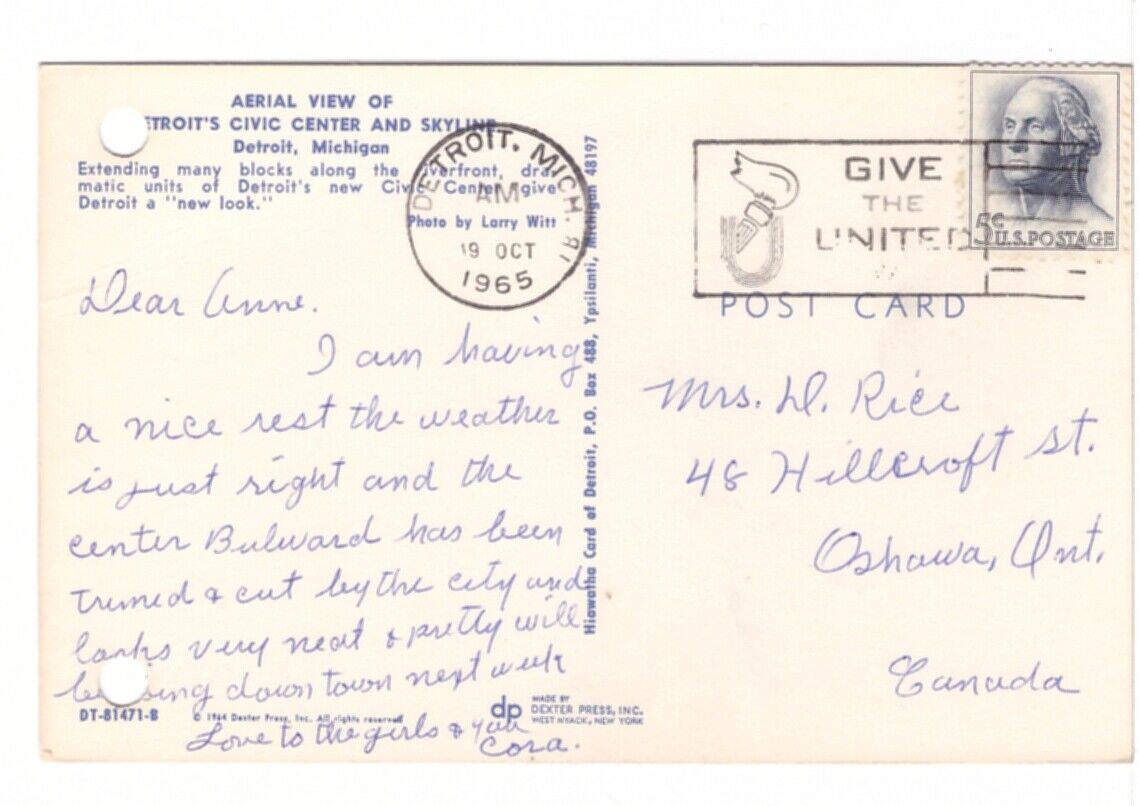 AERIAL VIEW OF
ETROIT'S CIVIC CENTER AND SKYLINE
Detroit, Michigan
Extending many blocks along the verfront, dra-
matic units of Detroit's new Civic Center give
Detroit a "new look."
Photo by Larry Witt
DETROIT, MICH.
AM
19 OCT
1965
GIVE
THE
UNITED
5c
U.S.POSTAGE
POST CARD
Dear Anne.
I am having
a nice rest the weather
is just right and the
center Bulward has been
trimed & cut by the city and
looks very neat & pretty will
down town next week
Love to the girls & you
Cora.
Hiawatha Card of Detroit, P.O. Box 488, Ypsilanti, Michigan 48197
Mrs. D. Rice
48 Hillcroft St.
Oshawa, Ont.
Canada
DT-81471-B
© 1964 Dexter Press, Inc. All rights reserved
dp
MADE BY
DEXTER PRESS, INC.
WEST NYACK, NEW YORK